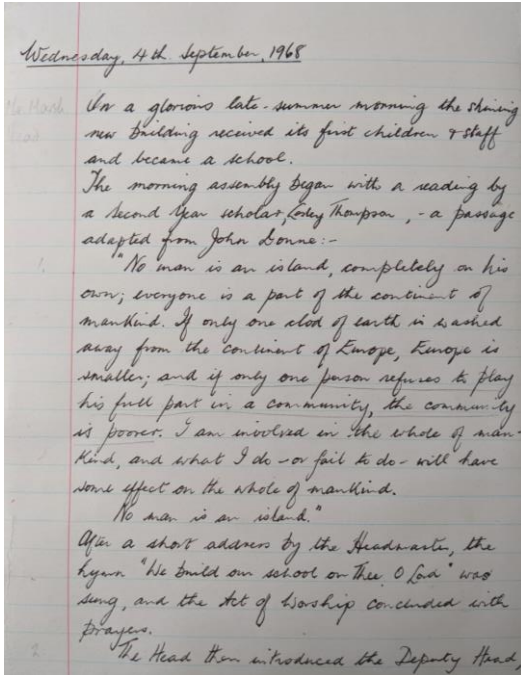 Wednesday, 4th. September, 1968
On a glorious late-summer morning the shining
new building received its first children & staff
and became a school.
The morning assembly began with a reading by
a Second Year scholar, Lesley Thompson, - a passage
adapted from John Donne:-
1.
"No man is an island, completely on his
own; everyone is a part of the continent of
mankind. If only one clod of earth is washed
away from the continent of Europe, Europe is
smaller; and if only one person refuses to play
his full part in a community, the community
is poorer. I am involved in the whole of man-
kind, and what I do - or fail to do - will have
some effect on the whole of mankind.
No man is an island."
After a short address by the Headmaster, the
hymn "We build our school on Thee, O Lord" was
sung, and the Act of Worship concluded with
prayers.
2.
The Head then introduced the Deputy Head,